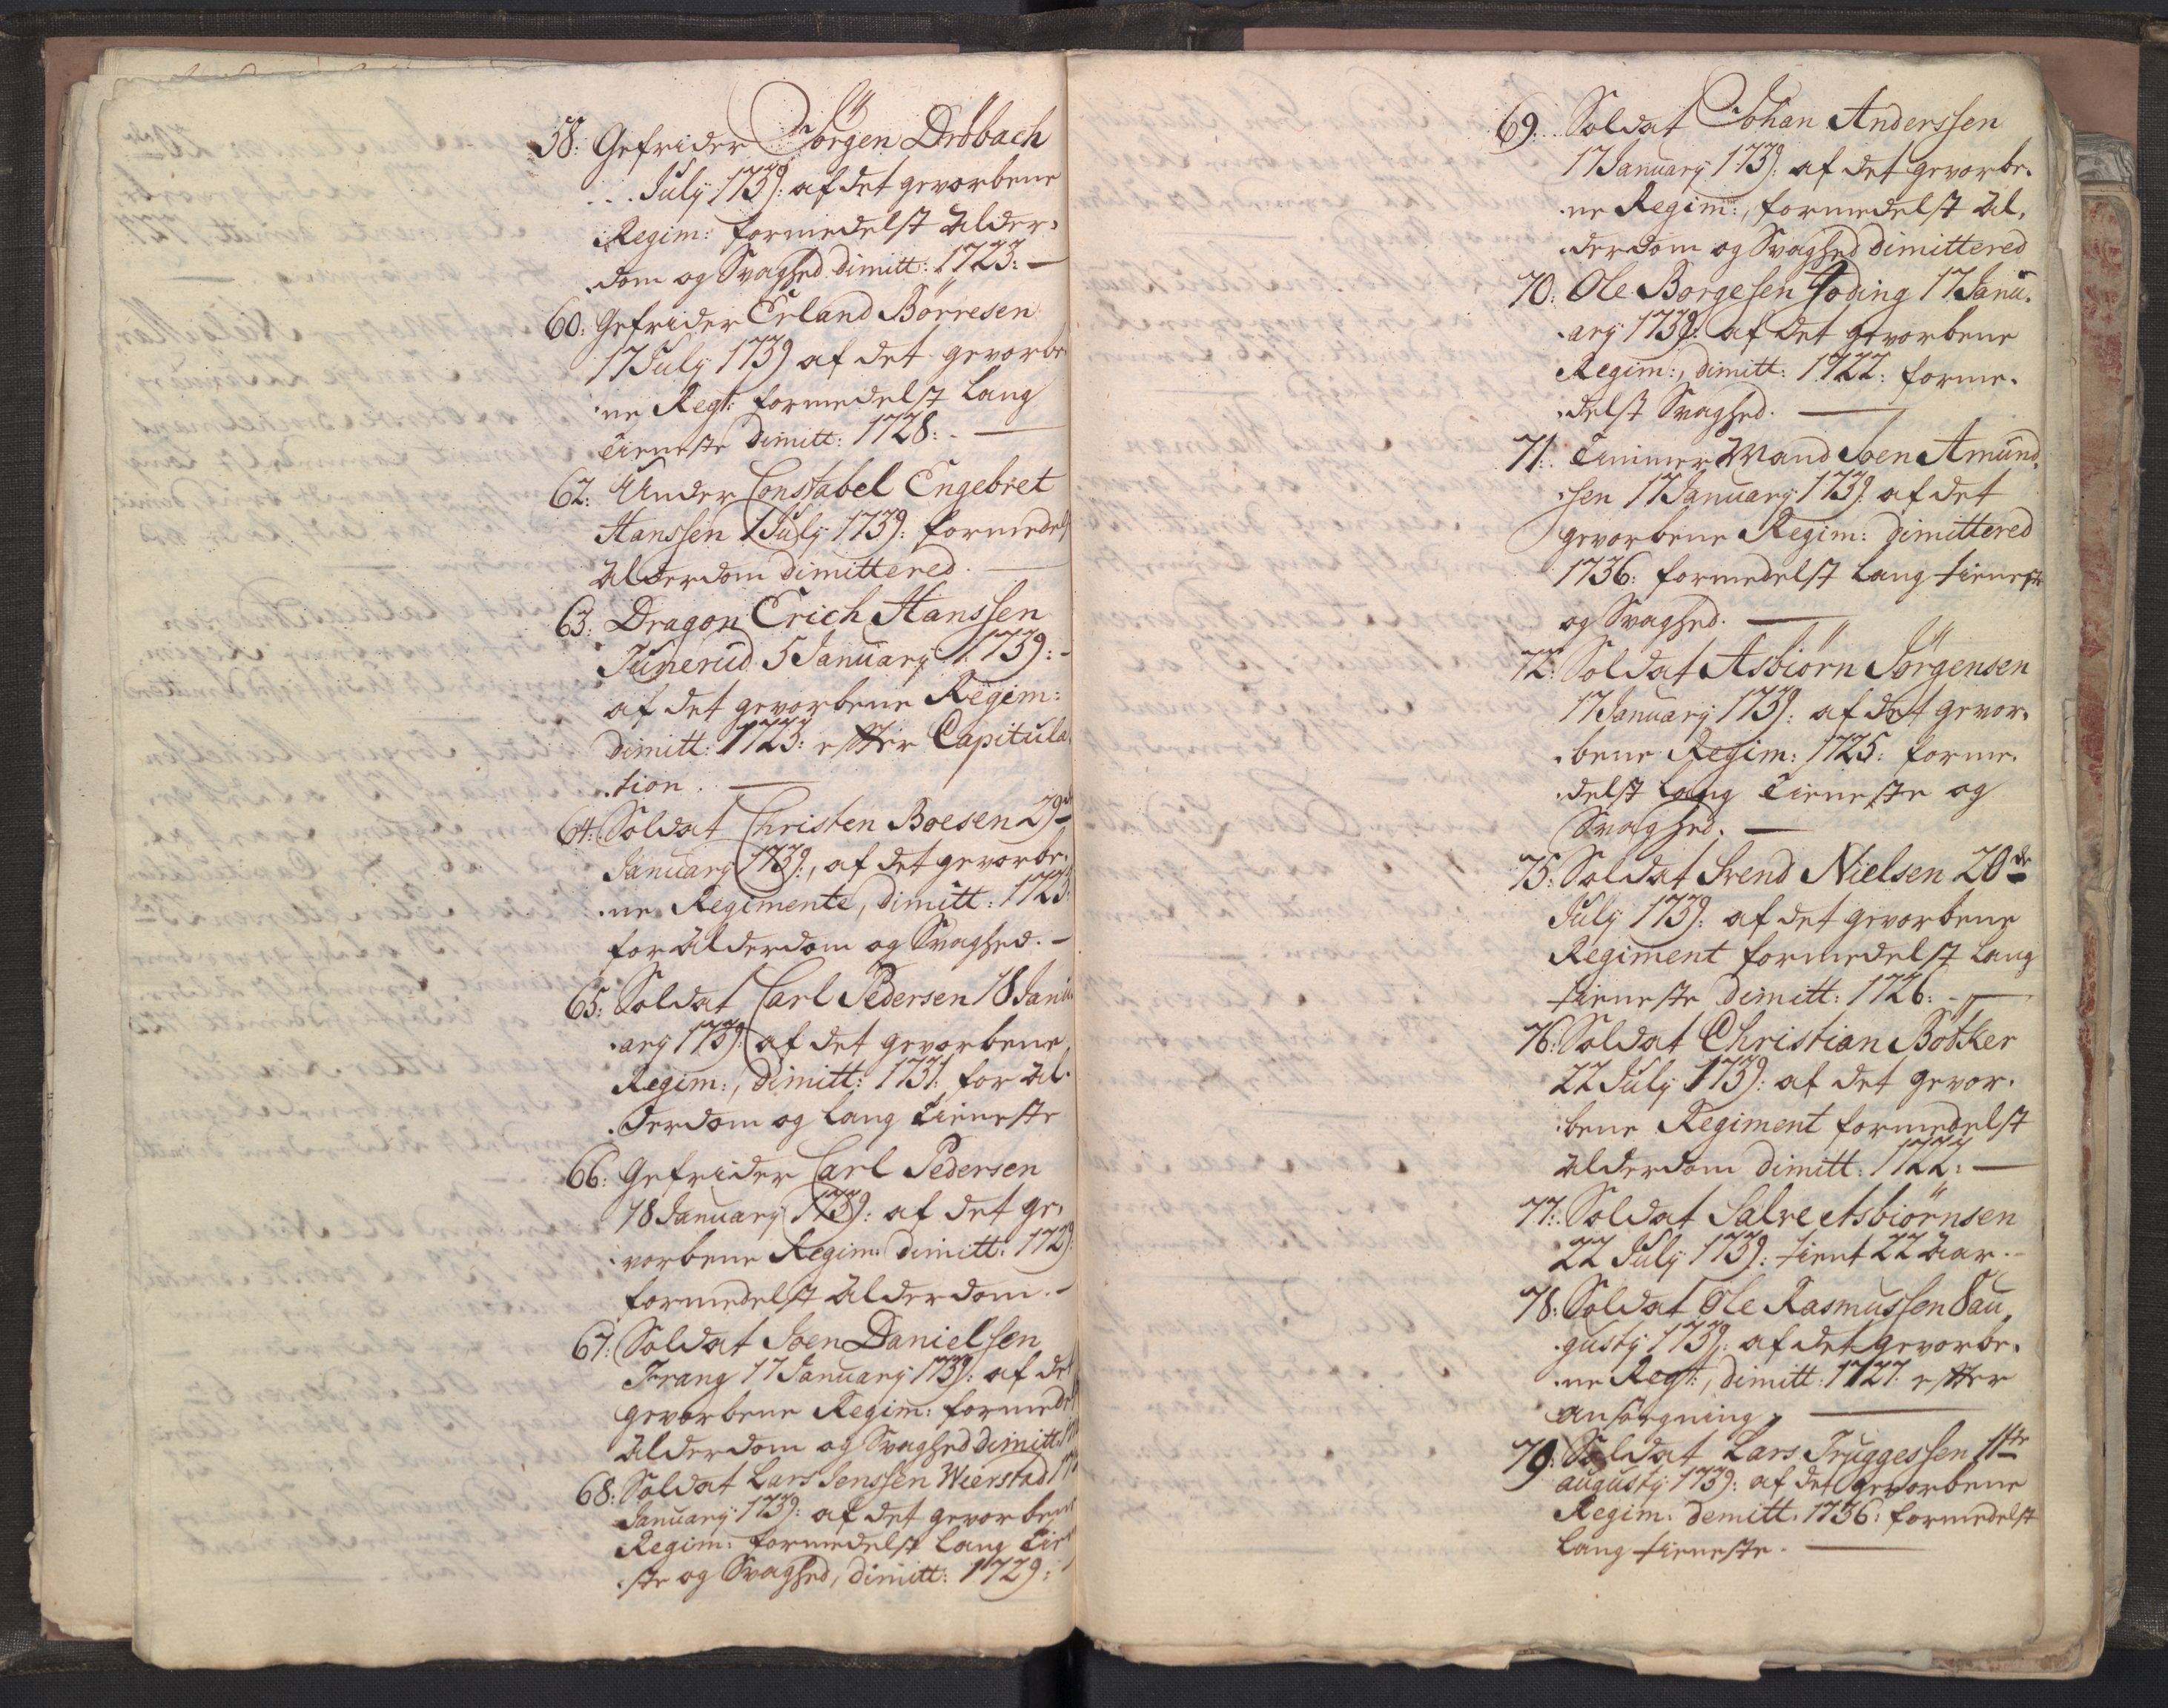 58: Gefrider Jörgen Dröbach
... July 1739: af det gevorbene
Regim: formedelst Alder-
dom og Svaghed dimitt: 1723: —
60: Gefrider Erland Börresen
17 July 1739 af det gevorbe
ne Regt: formedelst Lang
Tieneste dimitt: 1728: —
62: Under Constabel Engebret
Hanssen 1 July 1739: formedelst
Alderdom dimittered. —
63: Dragon Erich Hanssen
Junerud 5 January 1739: -
af det gevorbene Regim:
dimitt: 1723: effter Capitula-
tion. —
64: Soldat Christen Boesen 29de
January 1739:, af det gevorbe-
ne Regimente, dimitt: 1723:
for Alderdom og Svaghed. -
65: Soldat Carl Pedersen 18 Janu-
ary 1739: af det gevorbene
Regim:, dimitt: 1731: for Al-
derdom og Lang Tieneste
66: Gefrider Carl Pedersen
18 January 1739: af det ge-
vorbene Regim: dimitt: 1729:
formedelst Alderdom. -
67: Soldat Joen Danielsen
Frang 17 January 1739: af det
gevorbene Regim: formedelst
Alderdom og Svaghed dimitt:
68: Soldat Lars Jenssen Wierstad 17
January 1739: af det gevorbene
Regim: formedelst Lang Tiene
ste og Svaghed, dimitt: 1729:
69: Soldat Johan Anderssen
17 January 1739: af det gevorbe-
ne Regim:, formedelst Al-
derdom og Svaghed dimittered
70: Ole Borgesen Goding 17 Janu-
ary 1739: af det gevorbene
Regim:, dimitt: 1722: forme-
delst Svaghed. —
71: Timmer Mand Joen Amund-
sen 17 January 1739: af det
gevorbene Regim: dimittered
1736: formedelst Lang tieneste
og Svaghed. —
72: Soldat Asbiörn Jörgensen
17 January 1739: af det gevor-
bene Regim: 1725: forme-
delst Lang Tieneste og
Svaghed. —
75: Soldat Svend Nielsen 20de
July 1739: af det gevorbene
Regiment formedelst Lang
tieneste dimitt: 1726: —
76: Soldat Christian Bötker
22 July 1739: af det gevor-
bene Regiment formedelst
Alderdom dimitt: 1722: —
77: Soldat Salve Asbiörnsen
22 July 1739: tient 22 Aar. -
78: Soldat Ole Rasmussen 8 au-
gusty 1739: af det gevorbe-
ne Regt:, dimitt: 1727: effter
ansögning —
79: Soldat Lars Truggessen 11te
augusty 1739: af det gevorbene
Regim: demitt. 1736: formedelst
Lang tieneste. —